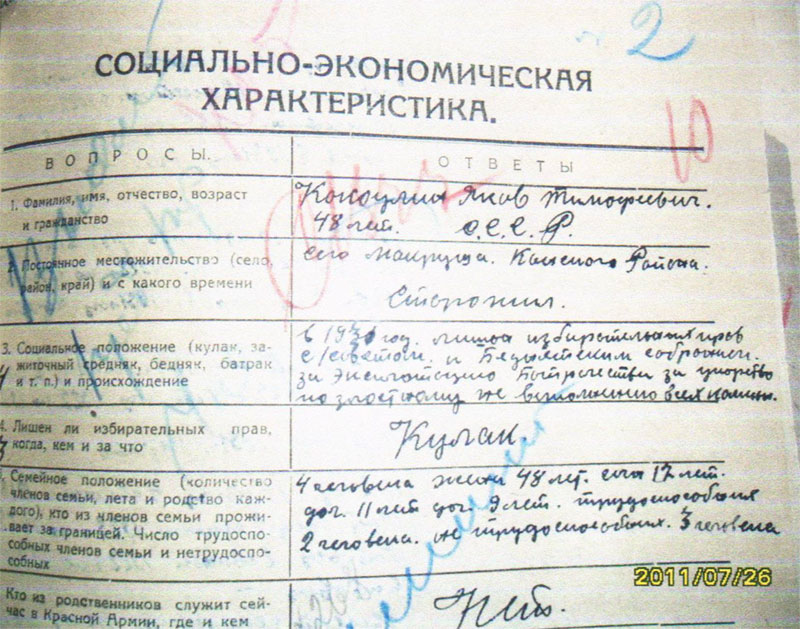 2
СОЦИАЛЬНО-ЭКОНОМИЧЕСКАЯ
ХАРАКТЕРИСТИКА.
10
ВОПРОСЫ.
ОТВЕТЫ
1. Фамилия, имя, отчество, возраст
и гражданство
Кокоулин Яков Тимофеевич.
48 лет. С.С.С.Р.
2. Постоянное местожительство (село,
район, край) и с какого времени
село Района.
Старожил.
3. Социальное положение (кулак, за-
житочный средняк, бедняк, батрак
и т. п.) и происхождение
в год. лишен избирательных прав
с/советом и Бедняцким собранием.
за Эксплотацию за
по не выполнению всех
4. Лишен ли избирательных прав,
когда, кем и за что
Кулак
Семейное положение (количество
членов семьи, лета и родство каж-
дого), кто из членов семьи прожи-
вает за границей. Число трудоспо-
собных членов семьи и нетрудоспо-
собных
4 человека жена 48 лет. сын 17 лет.
доч. 11 лет доч. 9 лет. трудоспособных
2 человека. не трудоспособных. 3 человека
Кто из родственников служит сей-
час в Красной Армии, где и кем
Нет.
2011/07/26